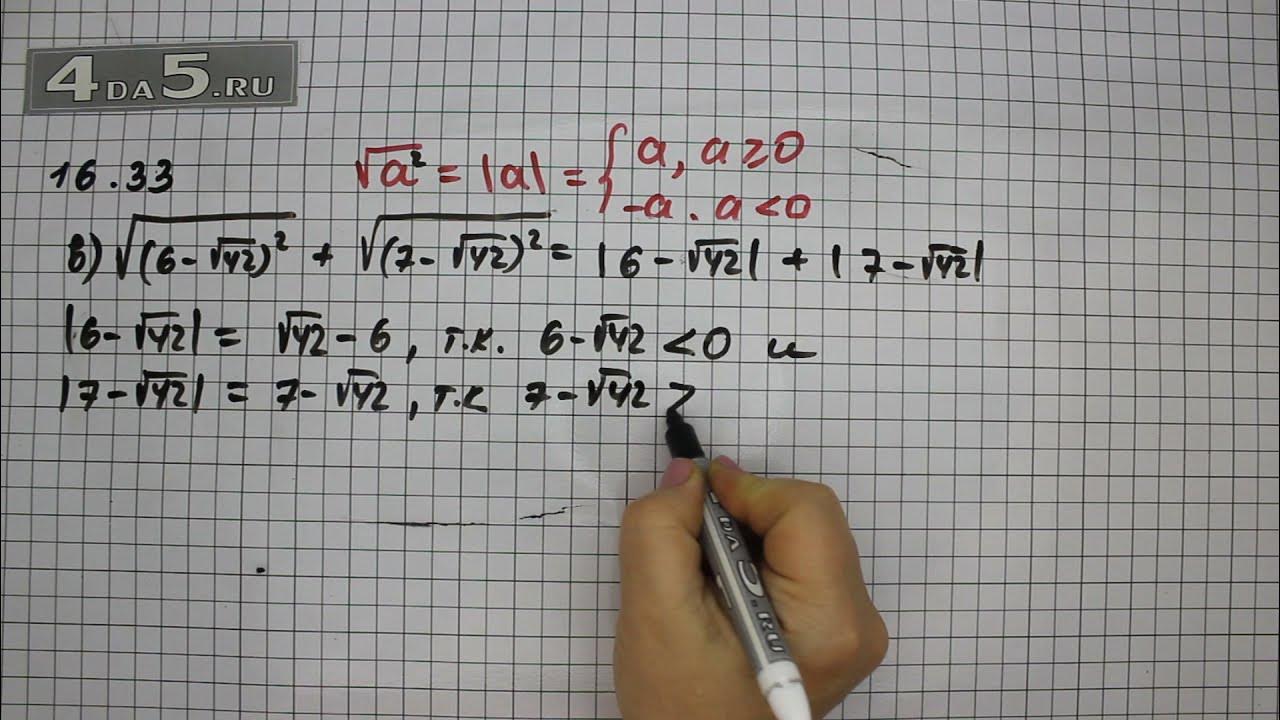 4DA5.RU
16.33 √a² = |a| = { a, a≥0
-a . a<0
в) √(6-√42)² + √(7-√42)² = |6-√42| + |7-√42|
|6-√42| = √42-6, т.к. 6-√42 <0 и
|7-√42| = 7-√42, т.к 7-√42 >
DA5.RU